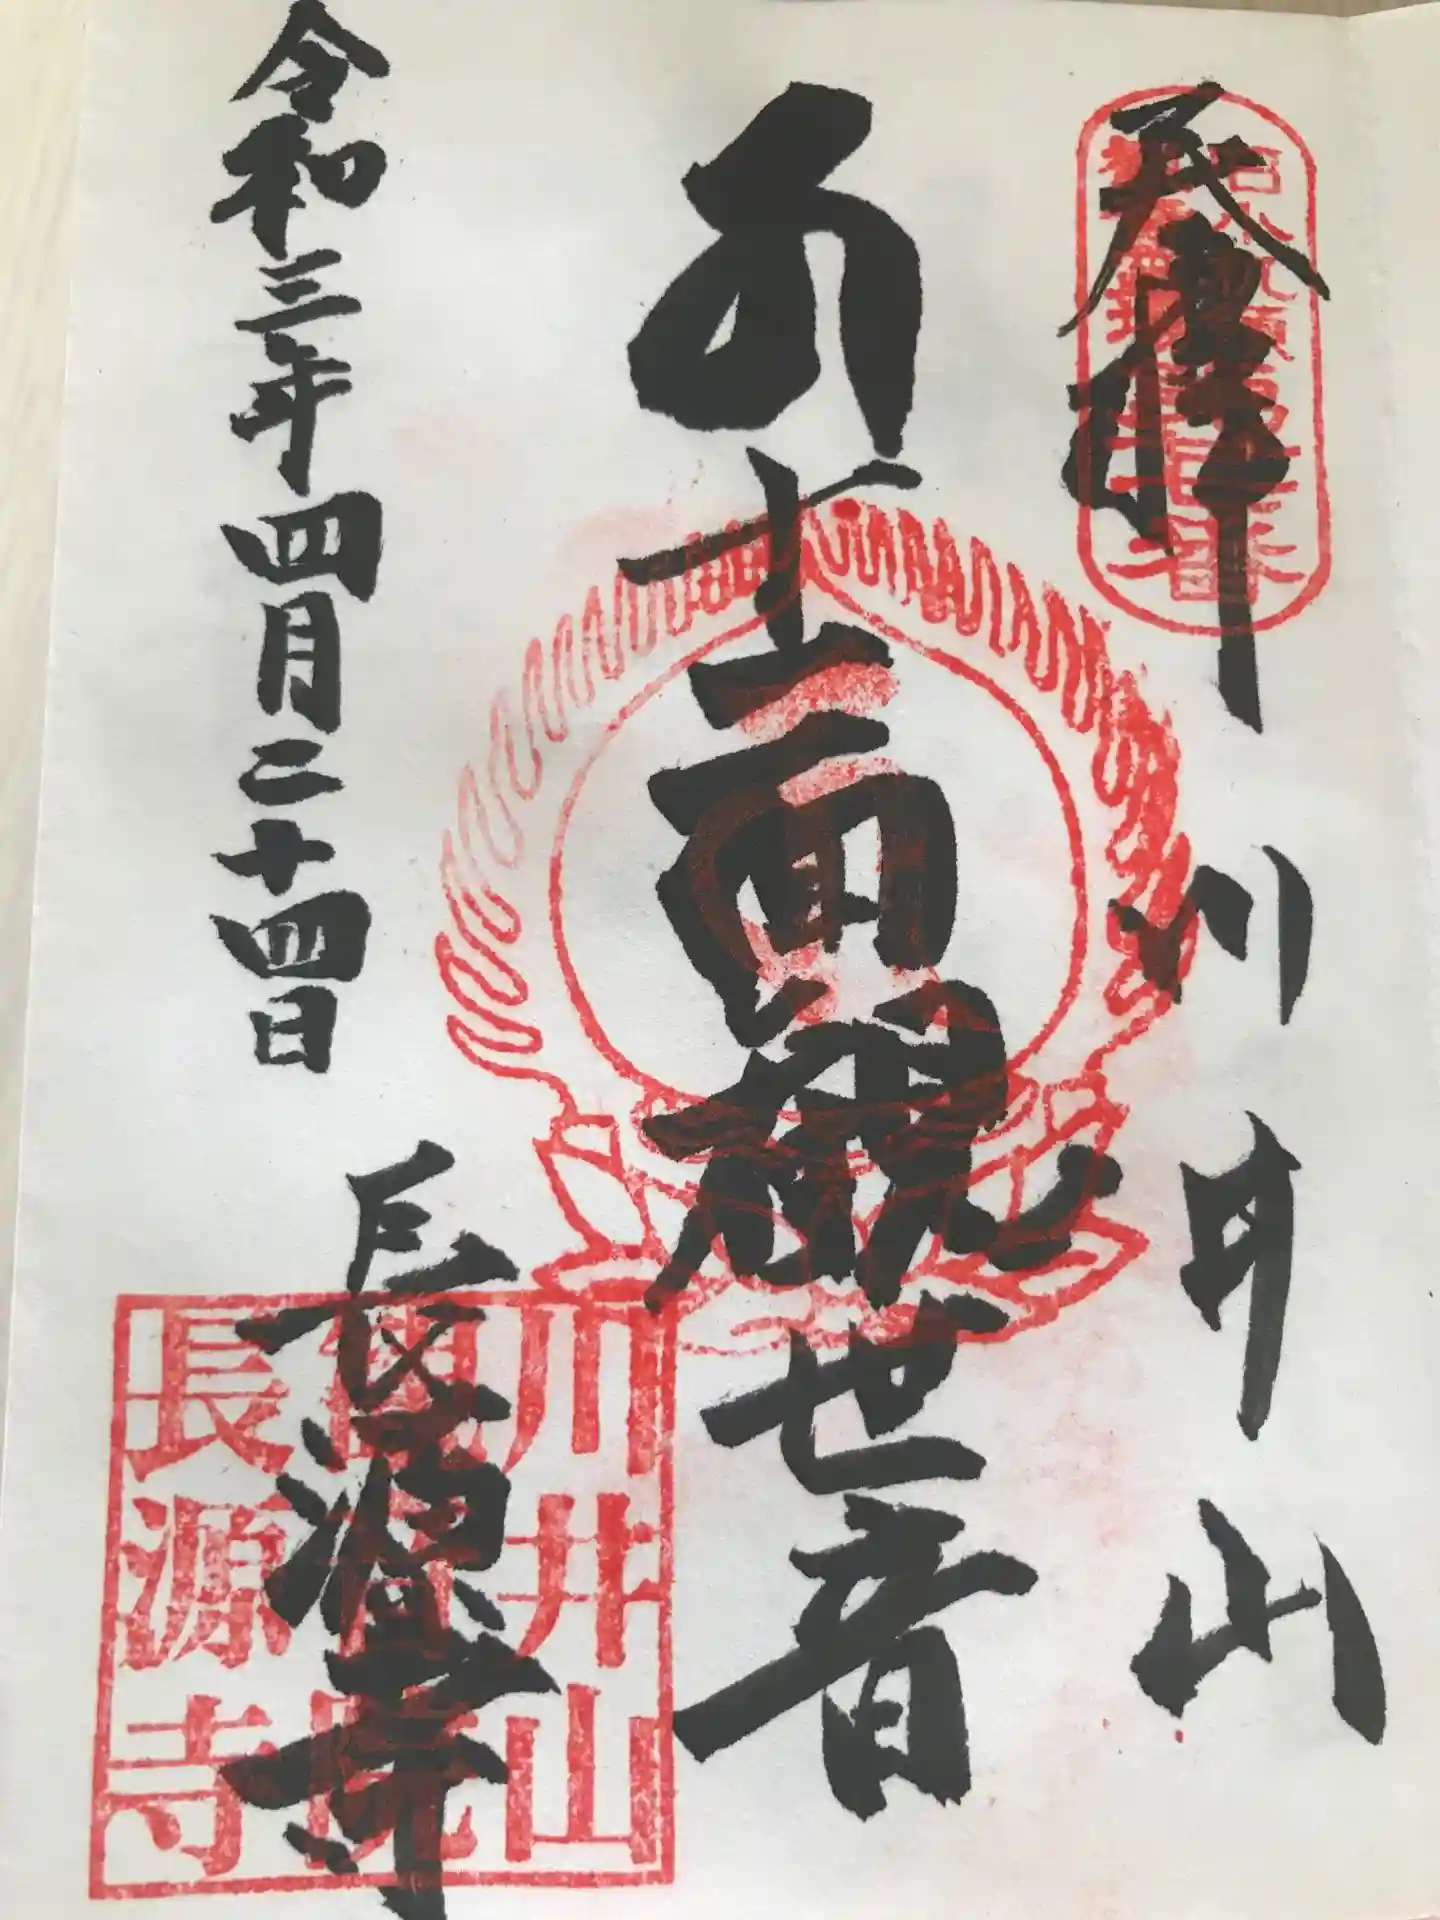 奉拝
川井山
十一面観世音
令和三年四月二十四日
長源寺
川井山
長源寺